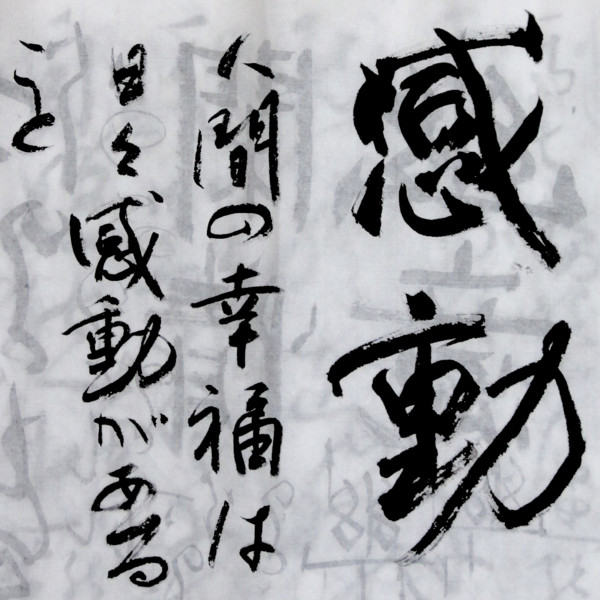 感動
人間の幸福は
日々感動がある
こと